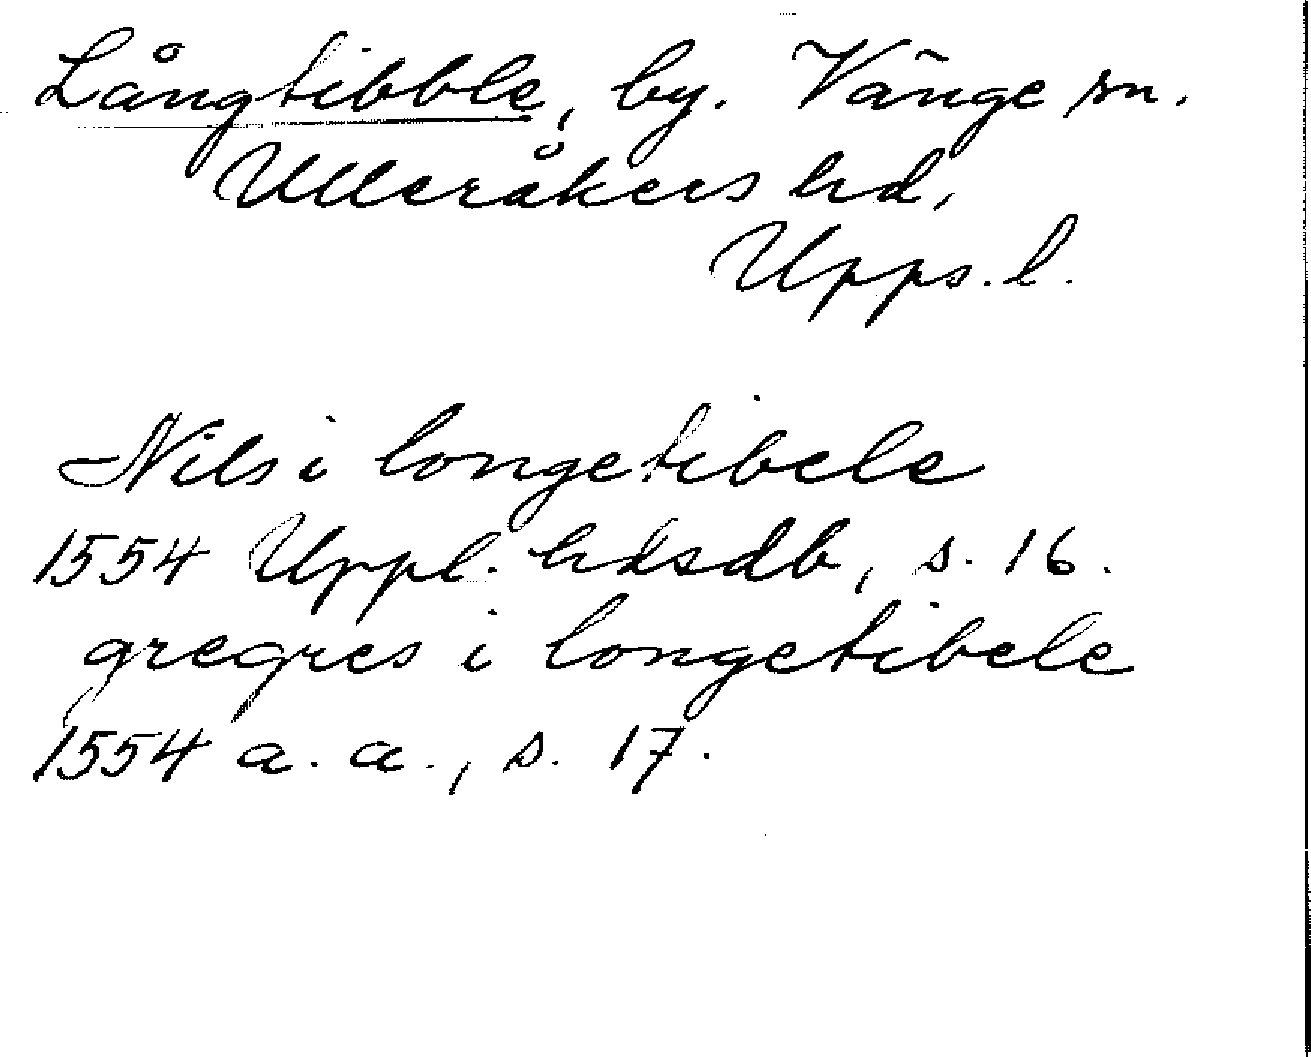 Långtibble, by. Vänge sn.
Ulleråkers hd,
Upps. l.
Nils i longetibele
1554 Uppl. hdsdb, s. 16.
gregres i longetibele
1554 a. a., s. 17.